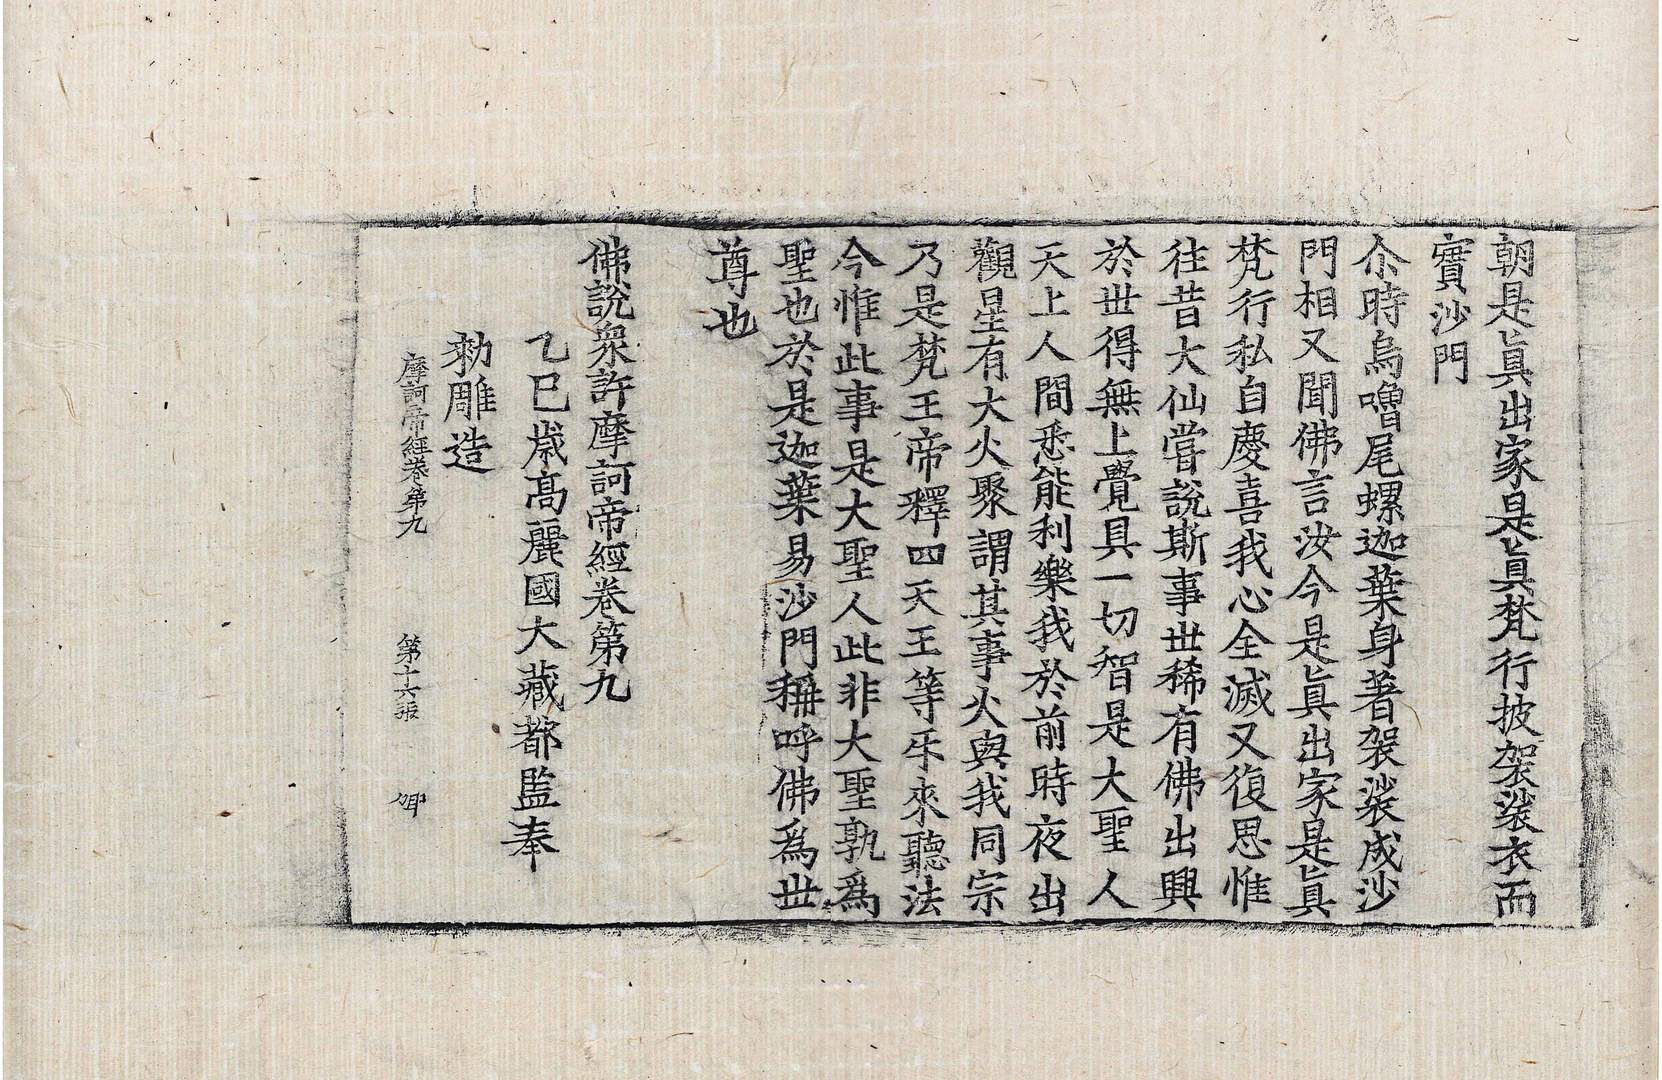 朝是眞出家是眞梵行披袈裟衣而
實沙門
尒時烏嚕尾螺迦葉身著袈裟成沙
門相又聞佛言汝今是眞出家是眞
梵行私自慶喜我心全滅又復思惟
往昔大仙嘗說斯事世稀有佛出興
於世得無上覺具一切智是大聖人
天上人間悉能利樂我於前時夜出
觀星有大火聚謂其事火與我同宗
乃是梵王帝釋四天王等來聽法
今惟此事是大聖人此非大聖孰爲
聖也於是迦葉易沙門稱呼佛爲世
尊也
佛說衆許摩訶帝經卷第九
乙巳歲高麗國大藏都監奉
勑雕造
摩訶帝經卷第九 第十六張 卿